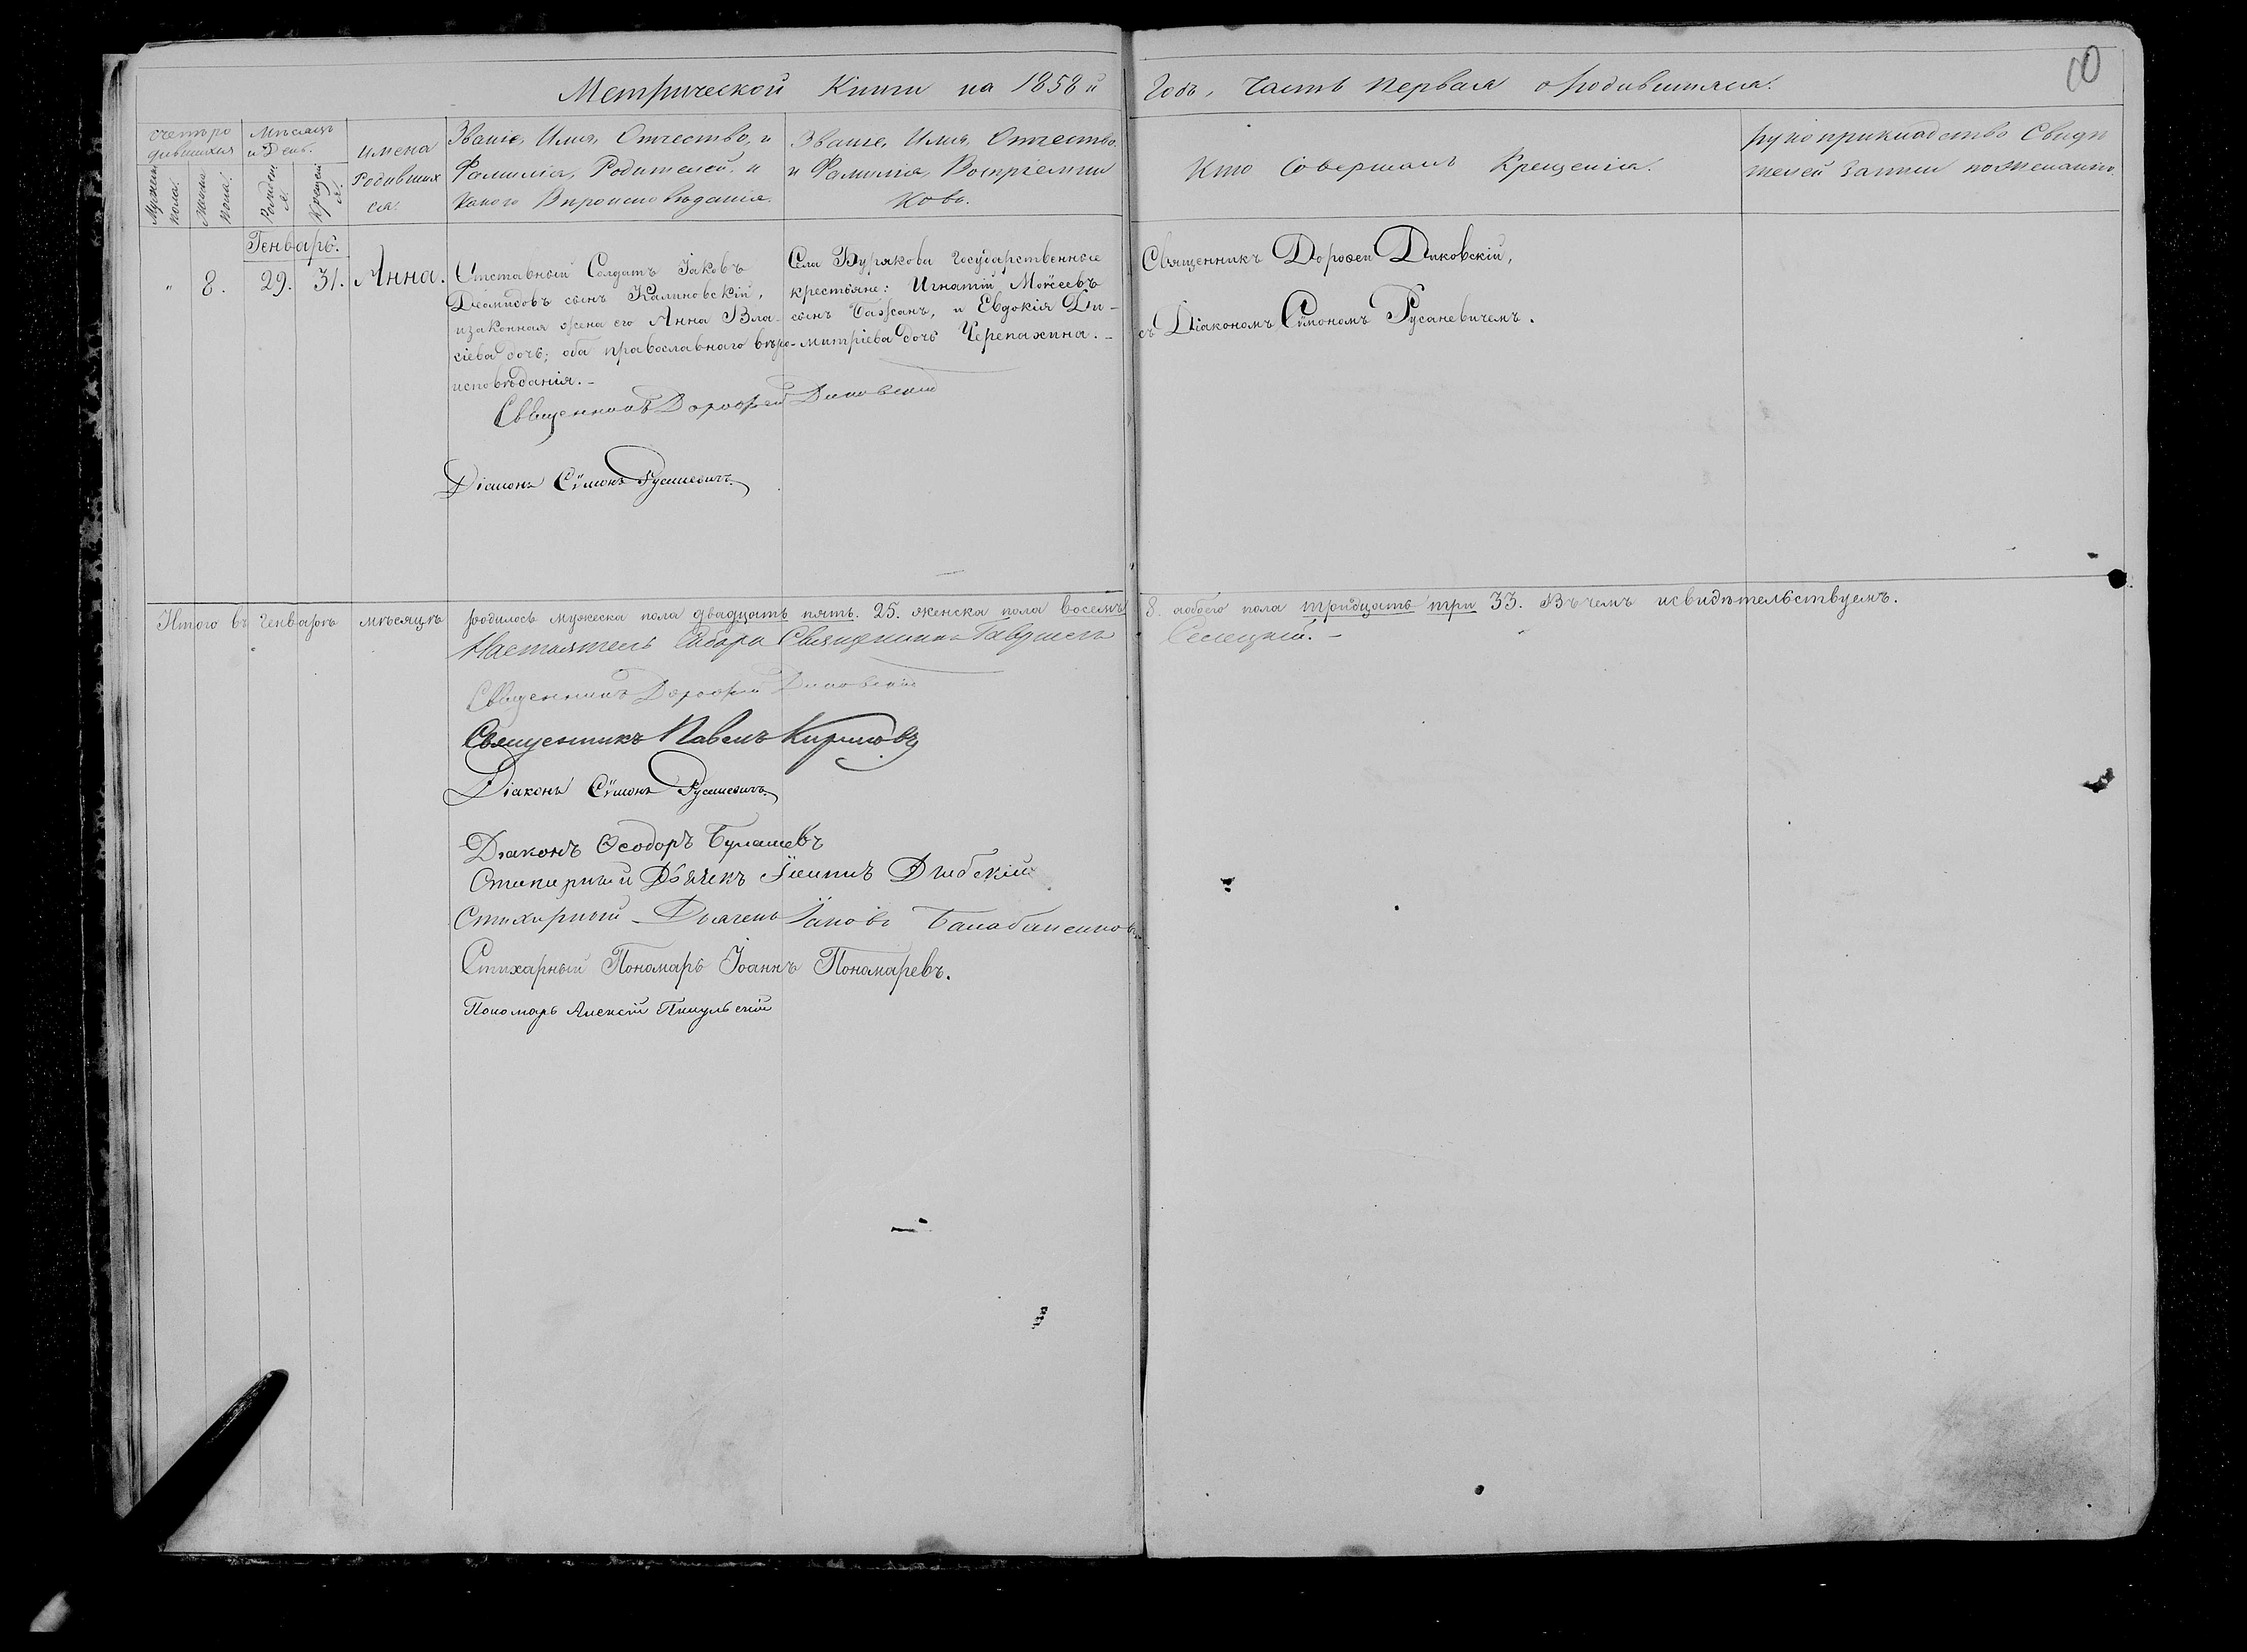 Метрической Книги на 1858й Годъ, Часть Первая о родившихся.
Счетъ ро
дившихся
Мужеска
пола.
Женска
пола.
Мѣсяцъ
и День.
Рожден
я.
Крещен
я.
Имена
Родивших
ся.
Званіе, Имя, Отчество, и
Фамилія, Родителей, и
Какого Вѣроисповѣданія.
Званіе, Имя, Отчество,
и Фамилія, Воспріемни
ковъ.
Кто Совершалъ Крещеніе.
Рукоприкладство Свидѣ
телей Записи по желанію.
Генварь.
" 8. 29. 31. Анна.
Отставный Солдатъ Іаковъ
Деомидовъ сынъ Калиновскій,
изаконная жена его Анна Вла-
сіева дочь; оба православнаго вѣро-
исповѣданія. -
Села Бурякови Государственные
крестьяне: Игнатій Моѵсеевъ
сынъ Бажанъ, и Евдокія Ди-
митріева дочь Черепахина. -
Священникъ Дороѳей Диковскій,
съ Діакономъ Сѵмономъ Русаневичемъ.
Священникъ Дорофей Диковский
Діаконъ Сѵмонъ Русаневичъ
Итого въ Генварѣ мѣсяцѣ родилось мужеска пола двадцать пять. 25. женска пола восемь 8. аобоего пола тридцать три 33. Въ чемъ исвидѣтельствуемъ.
Настоятель Собора Священникъ Гавриилъ Селецкій. -
Священникъ Дорофей Диковский
Священникъ Павелъ Кириловъ
Діаконъ Сѵмонъ Русаневичъ
Діаконъ Ѳеодоръ Булашевъ
Стихарный Дьячекъ
Стихарный Дьячекъ Іаковъ Балабаненковъ
Стихарный Пономарь Іоаннъ Пономаревъ.
Пономарь Алексій Пикульскій